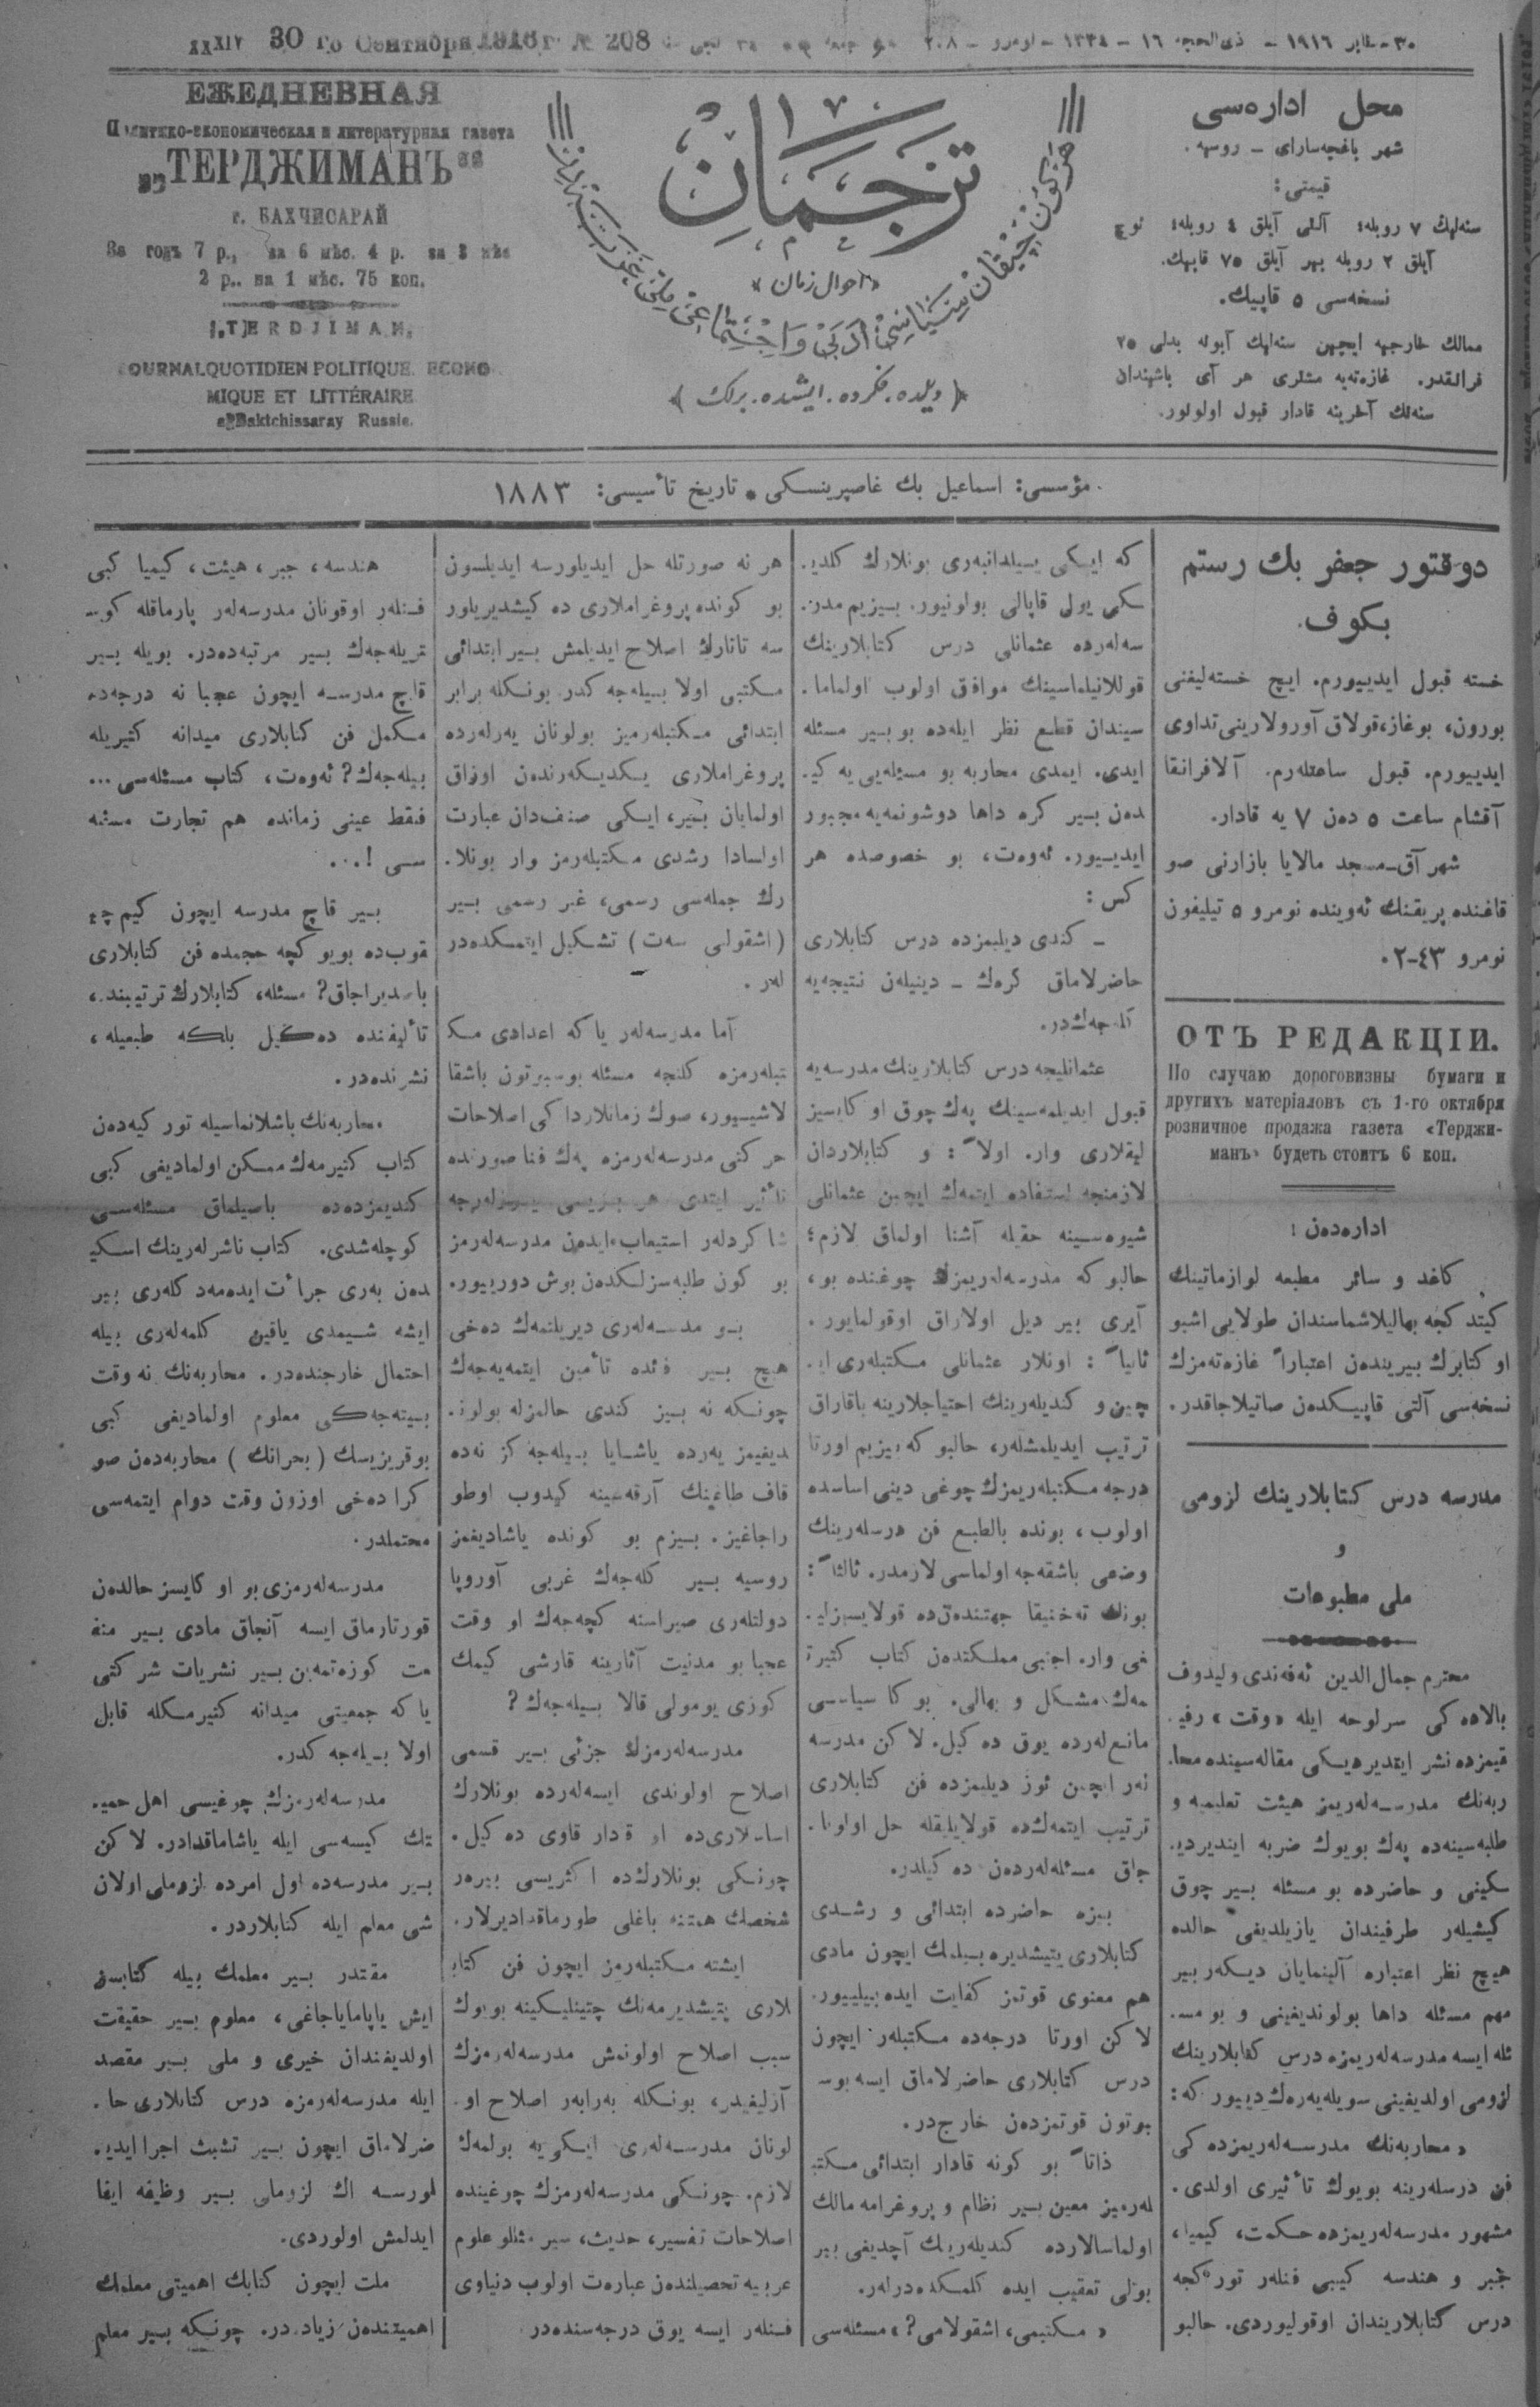 XXXIV 30 го Сентября 1916 г. № 208
٣٠ - ١٩١٦ - ذی‌الحجه ١٦ - ١٣٣٤ - نومرو - ٢٠٨
ЕЖЕДНЕВНАЯ
Политико-економическая и литературная газета
„ТЕРДЖИМАНЪ“
г. БАХЧИСАРАЙ
За годъ 7 р., за 6 мѣс. 4 р. за 3 мѣс
2 р.. на 1 мѣс. 75 коп.
„TERDJIMAN„
JOURNAL QUOTIDIEN POLITIQUE. ECONO
MIQUE ET LITTÉRAIRE
Baktchissaray Russie.
ترجمان
«احوال زمان»
﴿ دیلده. فکرده. ایشده. برلك ﴾
محل اداره‌سی
شهر باغچه‌سارای - روسیه.
قیمتی:
سنه‌لیك ٧ روبله؛ آلتی آیلق ٤ روبله؛ اوچ
آیلق ٢ روبله بیر آیلق ٧٥ قاپیك.
نسخه‌سی ٥ قاپیك.
ممالك خارجیه ایچین سنه‌لیك آبونه بدلی ٢٥
فرانقدر. غازه‌ته‌یه مشتری هر آی باشیندان
سنه‌نك آخرینه قادار قبول اولونور.
مؤسسی: اسماعیل بك غاصپرینسکی • تاریخ تأسیسی: ١٨٨٣
دوقتور جعفر بك رستم
بکوف.
خسته قبول ایدییورم. ایچ خسته‌لیغنی
بورون، بوغاز، قولاق آورولارینی تداوی
ایدییورم. قبول ساعتلەرم. آلافرانقا
آقشام ساعت ٥ دەن ٧ یه قادار.
شهر آق-مسجد مالایا بازارنی صو
قاغنده پریقنك ئه‌وینده نومرو ٥ تیلیفون
نومرو ٤٣-٢٠
ОТЪ РЕДАКЦІИ.
По случаю дороговизны бумаги и
другихъ матеріаловъ съ 1-го октября
розничное продажа газета «Терджи-
манъ» будетъ стоитъ 6 коп.
اداره‌دەن:
كاغد و سائر مطبعه لوازماتینك
كیتدكجه بهالیلاشماسندان طولایی اشبو
اوكتابرك بیریندەن اعتباراً غازه‌ته‌مزك
نسخه‌سی آلتی قاپیكدەن صاتیلاجاقدر.
مدرسه درس كتابلارینك لزومی
و
ملی مطبوعات
محترم جمال‌الدین ئه‌فه‌ندی ولیدوف
بالاده‌كی سرلوحه ایله «وقت» رفیـ
قیمزده نشر ایتدیردیكی مقاله‌سینده محا.
ربه‌نك مدرسه‌لەریمز هیئت تعلیمیه و
طلبه‌سینه‌ده په‌ك بویوك ضربه ایندیردیـ
كینی و حاضرده بو مسئله بیر چوق
كیشیلەر طرفیندان یازیلدیغی حالده
هیچ نظر اعتباره آلینمایان دیكەر بیر
مهم مسئله داها بولوندیغینی و بو مسـ
ئله ایسه مدرسه‌لەریمزه درس كتابلارینك
لزومی اولدیغینی سویله‌یه‌رەك دییور كه:
«محاربه‌نك مدرسه‌لەریمزده كی
فن درسلەرینه بویوك تأثیری اولدی.
مشهور مدرسه‌لەریمزده حكمت، كیمیا،
جبر و هندسه كیبی فنلەر توركجه
درس كتابلاریندان اوقولیوردی. حالبو
كه ایكی ییلدانبه‌ری بونلارك كلدیـ
كی یول قاپالی بولونیور. بیزیم مدر.
سه‌لەرده عثمانلی درس كتابلارینك
قوللانیلماسینك موافق اولوب اولماما.
سیندان قطع نظر ایله‌ده بو بیر مسئله
ایدی. ایمدی محاربه بو مسئله‌یی یه كیـ
دەن بیر كره داها دوشونمه‌یه مجبور
ایدییور. ئه‌وەت، بو خصوصده هر
كس:
- كندی دیلیمزده درس كتابلاری
حاضرلاماق كرەك - دینیلەن نتیجه‌یه
كله‌جەك‌در.
عثمانلیجه درس كتابلارینك مدرسه‌یه
قبول ایدیلمه‌سینك په‌ك چوق اوكایسیز
لیقلاری وار. اولاً: و كتابلاردان
لازمنجه استفاده ایتمه‌ك ایچین عثمانلی
شیوه‌سینه حقیله آشنا اولماق لازم؛
حالبو كه مدرسه‌لەریمزك چوغنده بو،
آیری بیر دیل اولاراق اوقولمایور.
ثانیاً: اونلار عثمانلی مكتبلەری ایـ
چین و كندیلەرینك احتیاجلارینه باقاراق
ترتیب ایدیلمشلەر، حالبو كه بیزیم اورتا
درجه مكتبلەریمزك چوغی دینی اساسده
اولوب، بونده بالطبع فن درسلەرینك
وضعی باشقه‌جه اولماسی لازمدر. ثالثاً:
بونك ته‌خنیقا جهتندەن‌ده قولایسیزلیـ
غی وار. اجنبی مملكتدەن كتاب كتیرتـ
مه‌ك مشكل و بهالی. بوكا سیاسی
مانع‌لەرده یوق ده‌كیل. لاكن مدرسه
لەر ایچین ئوز دیلیمزده فن كتابلاری
ترتیب ایتمه‌ك‌ده قولایلیقله حل اولونا.
جاق مسئله‌لەردەن ده‌كیلدر.
بیزه حاضرده ابتدائی و رشدی
كتابلاری یتیشدیره بیلمك ایچون مادی
هم معنوی قوتمز كفایت ایده بیلییور.
لاكن اورتا درجه‌ده مكتبلەر ایچون
درس كتابلاری حاضرلاماق ایسه بوسـ
بوتون قوتمزدەن خارج‌در.
ذاتاً بو كونه قادار ابتدائی مكتبـ
لەرمیز معین بیر نظام و پروغرامه مالك
اولماسالارده كندیلەرینك آچدیغی بیر
یولی تعقیب ایده كلمكده‌درلەر.
«مكتبمی، اشقولامی؟» مسئله‌سی
هر نه صورتله حل ایدیلورسه ایدیلسون
بو كونده پروغراملاری ده كیشدیریلور
سه تاتارك اصلاح ایدیلمش بیر ابتدائی
مكتبی اولا بیله‌جه‌كدر بونكله برابر
ابتدائی مكتبلەرمیز بولونان یەرلەرده
پروغراملاری یكدیكەرندەن اوزاق
اولمایان بیر، ایكی صنف‌دان عبارت
اولسادا رشدی مكتبلەرمز وار بونلا.
رك جمله‌سی رسمی، غیر رسمی بیر
(اشقولی سەت) تشكیل ایتمكده‌در
لەر.
آما مدرسه‌لەر یا كه اعدادی مكـ
تبلەرمزه كلنجه مسئله بوسبوتون باشقا
لاشییور، صوك زمانلاردا كی اصلاحات
حركتی مدرسه‌لەرمزه په‌ك فنا صورتده
تأثیر ایتدی هر بریسی یوزلەرجه
شاكردلەر استیعاب ایدەن مدرسه‌لەرمز
بو كون طلبه‌سزلكدەن بوش دورییور.
بو مدرسه‌لەری دیریلتمه‌ك دەخی
هیچ بیر فائده تأمین ایتمه‌یه‌جه‌ك
چونكه نه بیز كندی حالمزله بولونـ
دیغیمز یەرده یاشایا بیله‌جه كز نه‌ده
قاف طاغینك آرقه‌سینه كیدوب اوطو
راجاغیز. بیزم بو كونده یاشادیغمز
روسیه بیر كله‌جه‌ك غربی آوروپا
دولتلەری صیراسنه كچه‌جه‌ك او وقت
عجبا بو مدنیت آثارینه قارشی كیمك
كوزی یومولی قالا بیله‌جه‌ك؟
مدرسه‌لەرمزك جزئی بیر قسمی
اصلاح اولوندی ایسه‌لەرده بونلارك
اساسلاری‌ده او قدار قاوی ده كیل.
چونكی بونلارك‌ده اكثریسی بیرەر
شخصك همتنه باغلی طورماقدادیرلار.
ایشته مكتبلەرمز ایچون فن كتابـ
لاری یتیشدیرمه‌نك چتینلیكینه بویوك
سبب اصلاح اولونمش مدرسه‌لەرمزك
آزلیغیدر، بونكله بەرابەر اصلاح او.
لونان مدرسه‌لەری ایكی یه بولمه‌ك
لازم. چونكی مدرسه‌لەرمزك چوغینده
اصلاحات تفسیر، حدیث، سیر مثللو علوم
عربیه تحصیلندەن عبارەت اولوب دنیاوی
فنلەر ایسه یوق درجه‌سنده‌در.
هندسه، جبر، هیئت، كیمیا كبی
فنلەر اوقونان مدرسه‌لەر پارماقله كوسـ
تریله‌جه‌ك بیر مرتبه‌ده‌در. بویله بیر
قاچ مدرسه ایچون عجبا نه درجه‌ده
مكمل فن كتابلاری میدانه كتیریله
بیله‌جه‌ك؟ ئه‌وەت، كتاب مسئله‌سی...
فقط عینی زمانده هم تجارت مسئله
سی!...
بیر قاچ مدرسه ایچون كیم چیـ
قوب‌ده بویوكچه حجمده فن كتابلاری
باصدیراجاق؟ مسئله، كتابلارك ترتیبند،
تألیفنده ده‌كیل بلكه طبعیله،
نشرنده‌در.
محاربه‌نك باشلانماسیله توركیه‌دەن
كتاب كتیرمه‌ك ممكن اولمادیغی كبی
كندیمزده‌ده باصیلماق مسئله‌سی
كوچله‌شدی. كتاب ناشرلەرینك اسكیـ
دەن بەری جرأت ایده‌مه‌دكلەری بیر
ایشه شیمدی یاقین كلمه‌لەری بیله
احتمال خارجنده‌در. محاربه‌نك نه وقت
بیته‌جه‌كی معلوم اولمادیغی كبی
بوقریزیسك (بحرانك) محاربه‌دەن صو
كرا دەخی اوزون وقت دوام ایتمه‌سی
محتملدر.
مدرسه‌لەرمزی بو اوكایسز حالدەن
قورتارماق ایسه آنجاق مادی بیر منفـ
عت كوزه‌تمه‌ین بیر نشریات شركتی
یا كه جمعیتی میدانه كتیرمكله قابل
اولا بیله‌جه‌كدر.
مدرسه‌لەرمزك چوغیسی اهل حمیـ
تك كیسه‌سی ایله یاشاماقدادر. لاكن
بیر مدرسه‌ده اول امرده لزوملی اولان
شی معلم ایله كتابلاردر.
مقتدر بیر معلمك بیله كتابسز
ایش یاپامایاجاغی، معلوم بیر حقیقت
اولدیغندان خیری و ملی بیر مقصد
ایله مدرسه‌لەرمزه درس كتابلاری حا.
ضرلاماق ایچون بیر تشبث اجرا ایدیـ
لورسه اك لزوملی بیر وظیفه ایفا
ایدلمش اولوردی.
ملت ایچون كتابك اهمیتی معلمك
اهمیتندەن زیاده‌در. چونكه بیر معلم